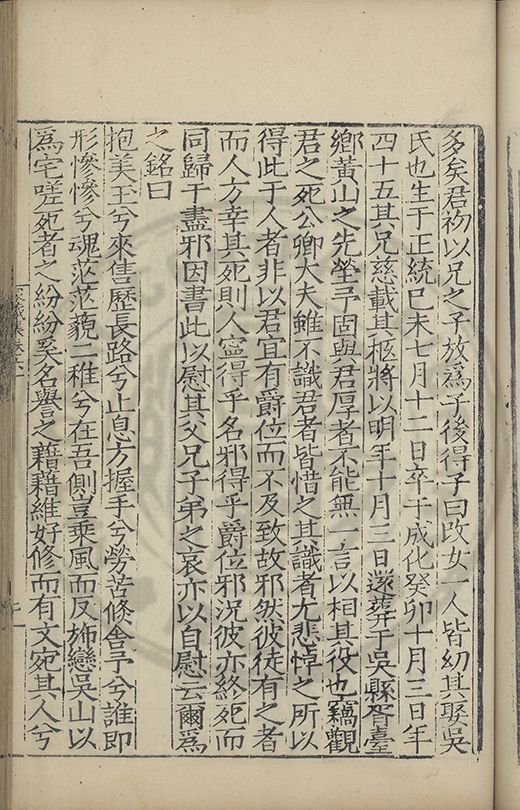 多矣君初以兄之子放爲子後得子曰改女一人皆幼其娶吳
氏也生于正統己未七月十二日卒于成化癸卯十月三日年
四十五其兄慈載其柩將以明年十月三日還葬于吳縣胥臺
鄉黃山之先塋予固與君厚者不能無一言以相其役也竊觀
君之死公卿大夫雖不識君者皆惜之其識者尤悲悼之所以
得此于人者非以君宜有爵位而不及致故邪然彼徒有之者
而人方幸其死則人寧得乎名邪得乎爵位邪況彼亦終死而
同歸于盡邪因書此以慰其父兄子弟之哀亦以自慰云爾爲
之銘曰
抱美玉兮來售歷長路兮止息方握手兮勞苦倏舍予兮誰即
形慘慘兮魂茫茫藐二稚兮在吾側豈乘風而反斾戀吳山以
爲宅嗟死者之紛紛奚名譽之藉藉維好修而有文宛其人兮